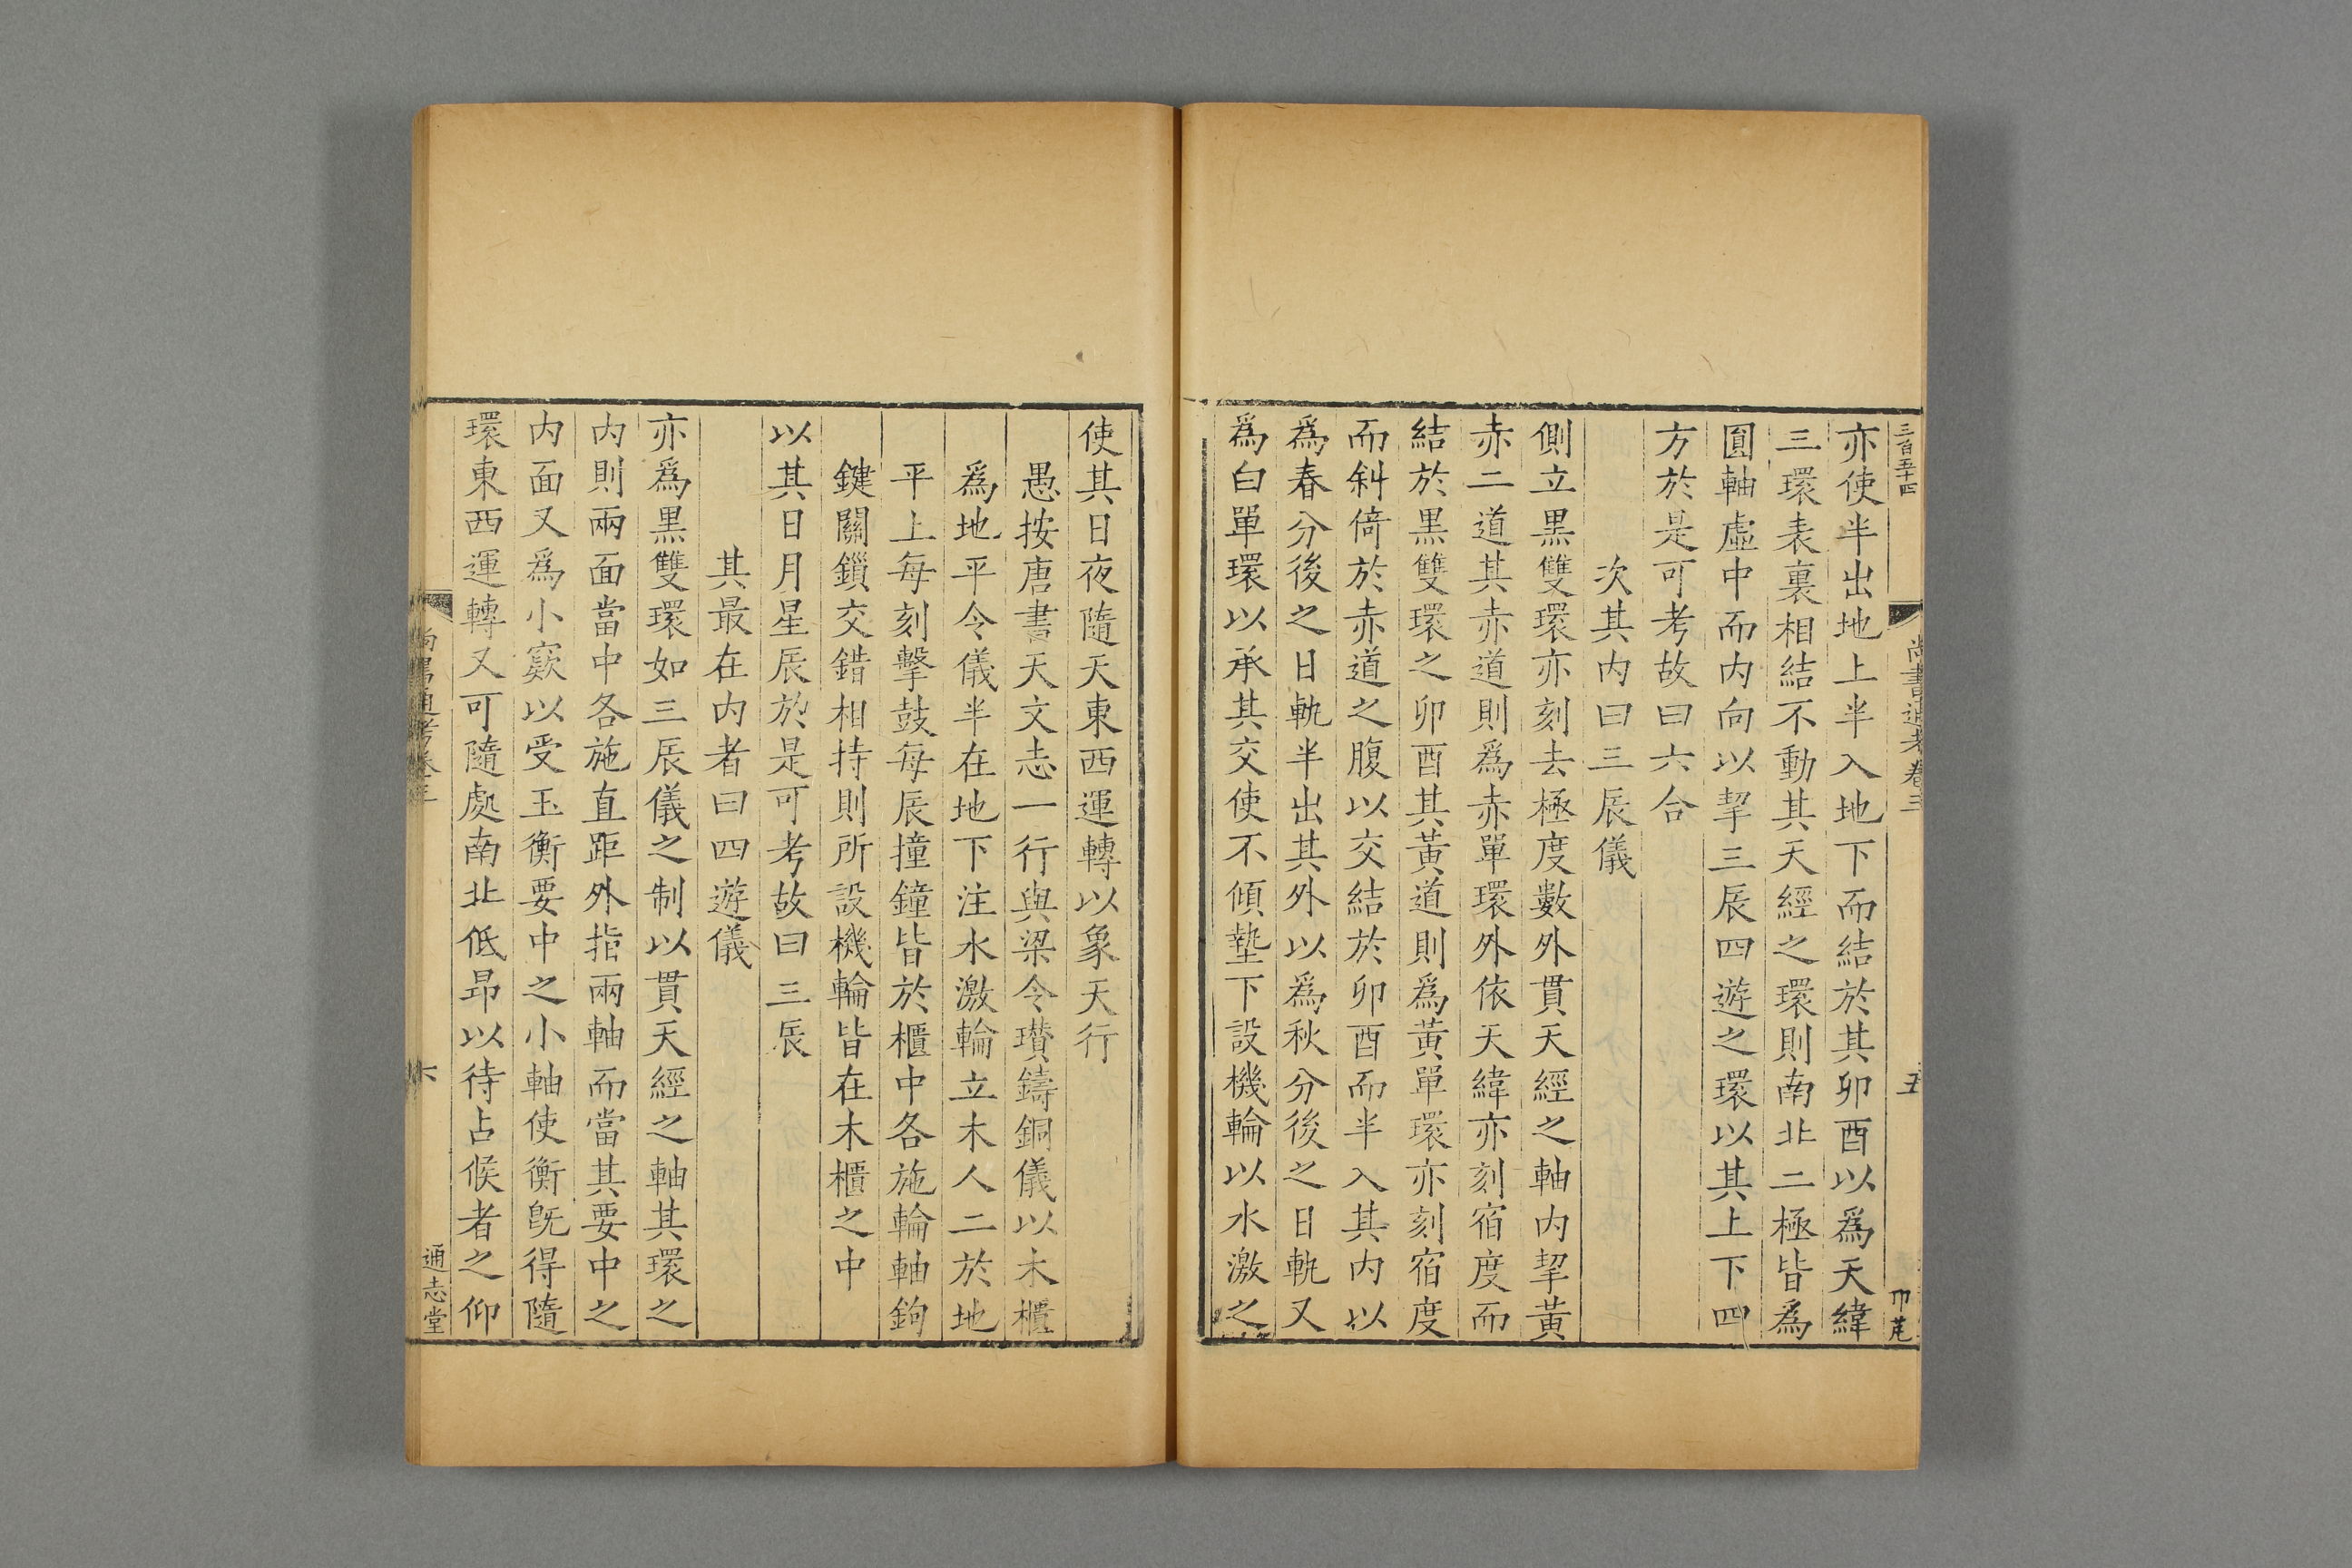 三百五十四
尚書通考卷三
五
亦使半出地上半入地下而結於其卯酉以爲天緯
三環表裏相結不動其天經之環則南北二極皆爲
圓軸虛中而内向以挈三辰四遊之環以其上下四
方於是可考故曰六合
次其内曰三辰儀
側立黑雙環亦刻去極度數外貫天經之軸内挈黃
赤二道其赤道則爲赤單環外依天緯亦刻宿度而
結於黑雙環之卯酉其黃道則爲黃單環亦刻宿度
而斜倚於赤道之腹以交結於卯酉而半入其内以
爲春分後之日軌半出其外以爲秋分後之日軌又
爲白單環以承其交使不傾墊下設機輪以水激之
使其日夜隨天東西運轉以象天行
愚按唐書天文志一行與梁令瓚鑄銅儀以木櫃
爲地平令儀半在地下注水激輪立木人二於地
平上每刻擊鼓每辰撞鐘皆於櫃中各施輪軸鉤
鍵關鎻交錯相持則所設機輪皆在木櫃之中
以其日月星辰於是可考故曰三辰
其最在内者曰四遊儀
亦爲黑雙環如三辰儀之制以貫天經之軸其環之
内則兩面當中各施直距外指兩軸而當其要中之
内面又爲小窽以受玉衡要中之小軸使衡旣得隨
環東西運轉又可隨處南北低昂以待占候者之仰
尚書通考卷三
六
通志堂